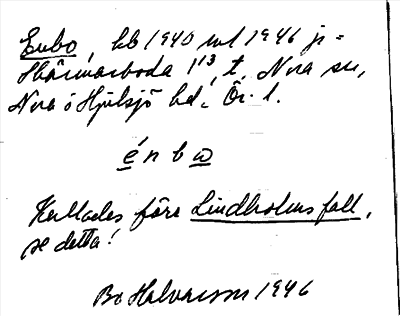 Enbo, hb 1940 ml 1946 js =
Skärmarboda 1¹³, t. Nora sn,
Nora o Hjulsjö hd. Ör. l.
é n b ω
Kallades före Lindholmsfall,
se detta!
Bo Halvarsson 1946